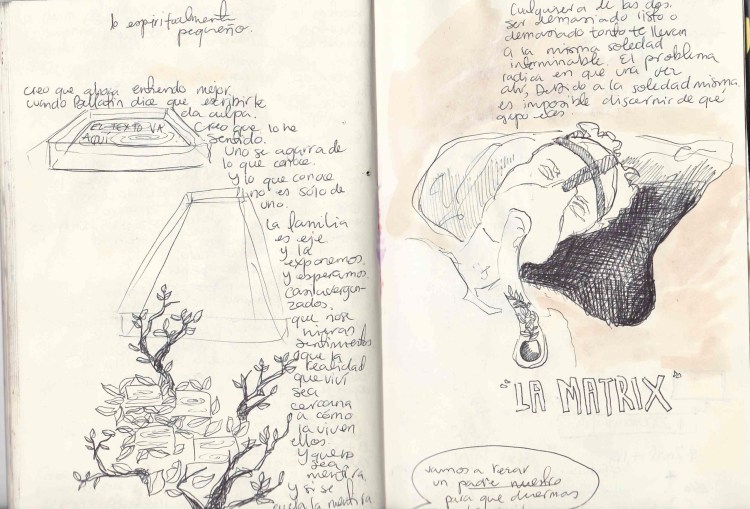 lo espiritualmente
pequeño.
creo que ahora entiendo mejor.
cuando dice que escribirte
da culpa.
Creo que lo he
sentido.
EL TEXTO VA
AQUÍ
Uno se agarra de
lo que conoce.
Y lo que conoce
no es sólo de
uno.
La familia
es eje
y la
exponemos.
y esperamos.
casi avergon-
zados.
que no se
hieran
sentimientos
que la
realidad
que viví
sea
cercana
a cómo
la viven
ellos
y quiero
sea
mentira.
y si se
la mentira
Cualquiera de las dos.
ser demasiado listo o
demasiado tonto te llevan
a la misma soledad
interminable. El problema
radica en que una vez
ahí, debido a la soledad misma,
es imposible discernir de qué
grupo eres.
"LA MATRIX"
vamos a rezar
un padre nuestro
para que duermas